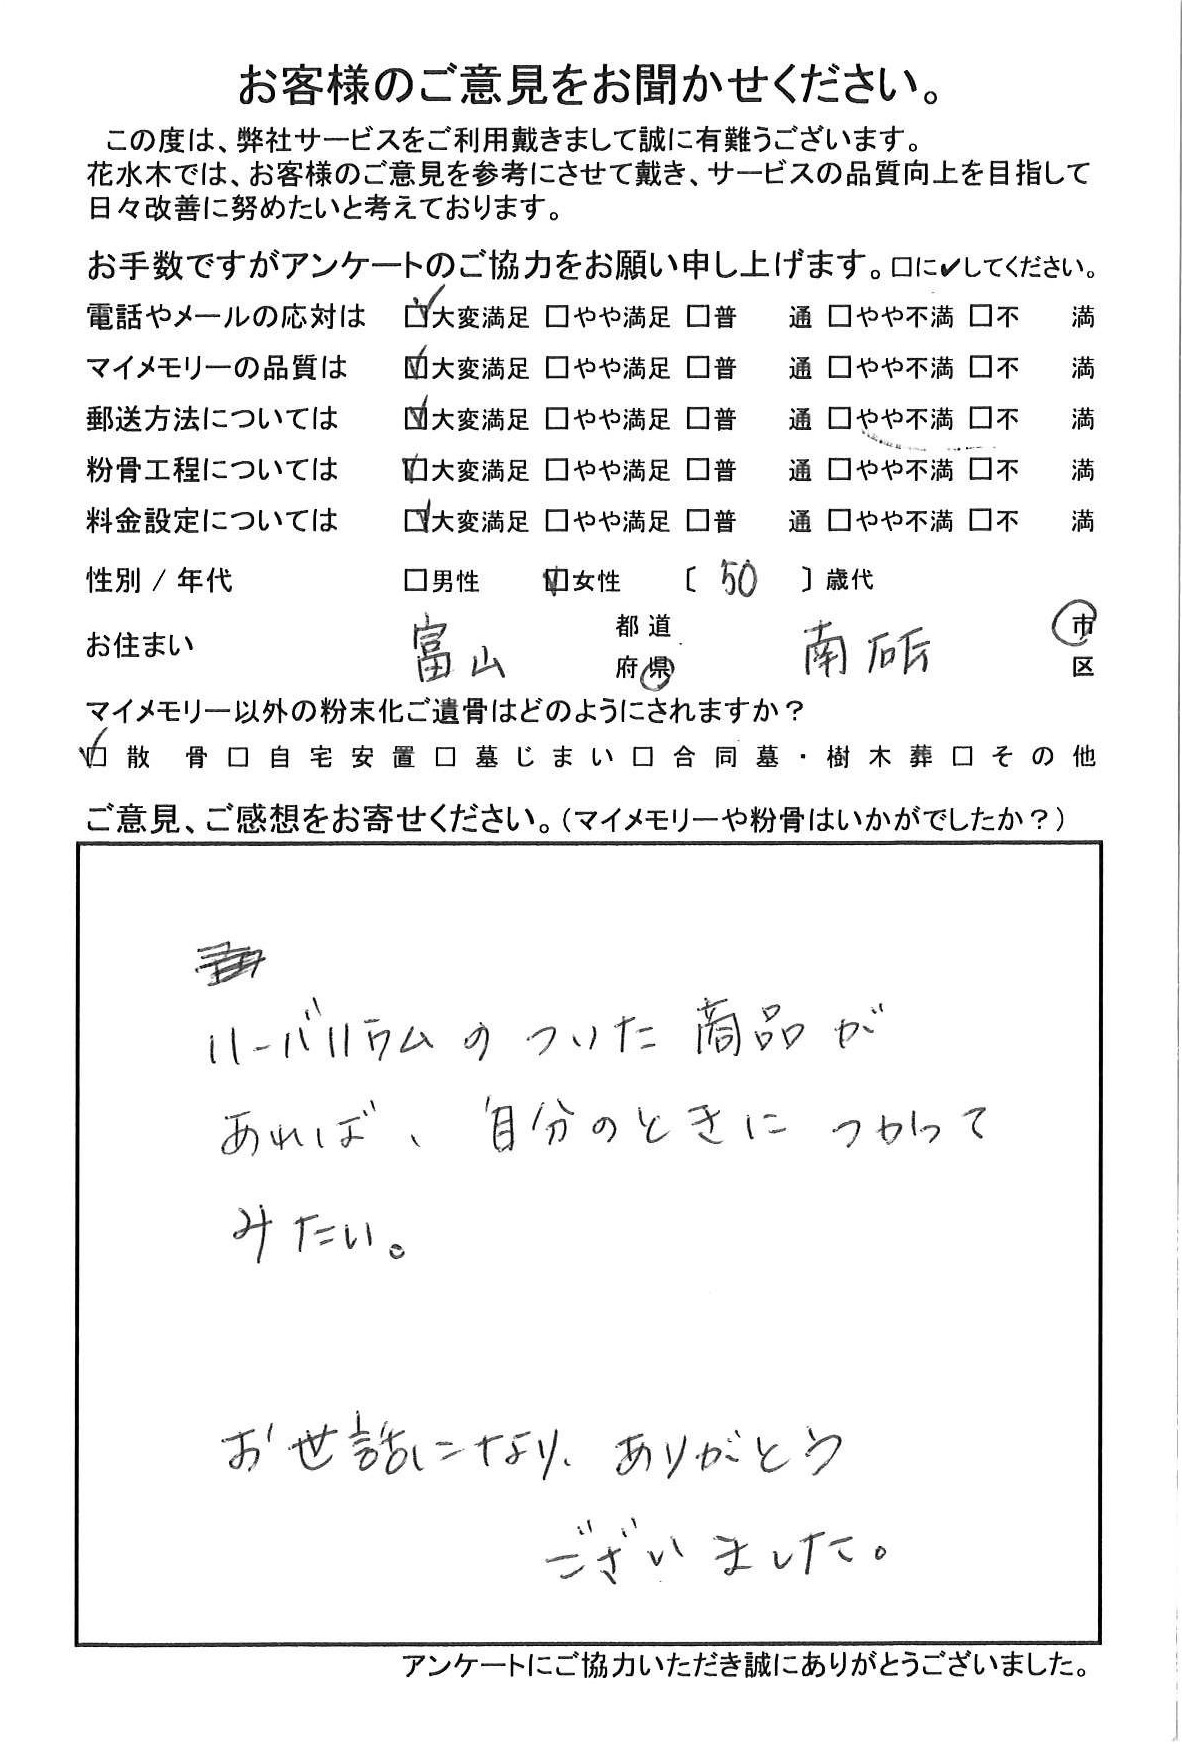 お客様のご意見をお聞かせください。
この度は、弊社サービスをご利用戴きまして誠に有難うございます。
花水木では、お客様のご意見を参考にさせて戴き、サービスの品質向上を目指して
日々改善に努めたいと考えております。
お手数ですがアンケートのご協力をお願い申し上げます。□に✔してください。
電話やメールの応対は ☑大変満足 □やや満足 □普 通 □やや不満 □不 満
マイメモリーの品質は ☑大変満足 □やや満足 □普 通 □やや不満 □不 満
郵送方法については ☑大変満足 □やや満足 □普 通 □やや不満 □不 満
粉骨工程については ☑大変満足 □やや満足 □普 通 □やや不満 □不 満
料金設定については ☑大変満足 □やや満足 □普 通 □やや不満 □不 満
性別 / 年代 □男性 ☑女性 〔 50 〕歳代
お住まい 富山 都道府県 南砺 市区
マイメモリー以外の粉末化ご遺骨はどのようにされますか？
☑散 骨□自宅安置□墓じまい□合同墓・樹木葬□その他
ご意見、ご感想をお寄せください。（マイメモリーや粉骨はいかがでしたか？）
ハーバリウムのついた商品が
あれば、自分のときにつかって
みたい。
お世話になり、ありがとう
ございました。
アンケートにご協力いただき誠にありがとうございました。